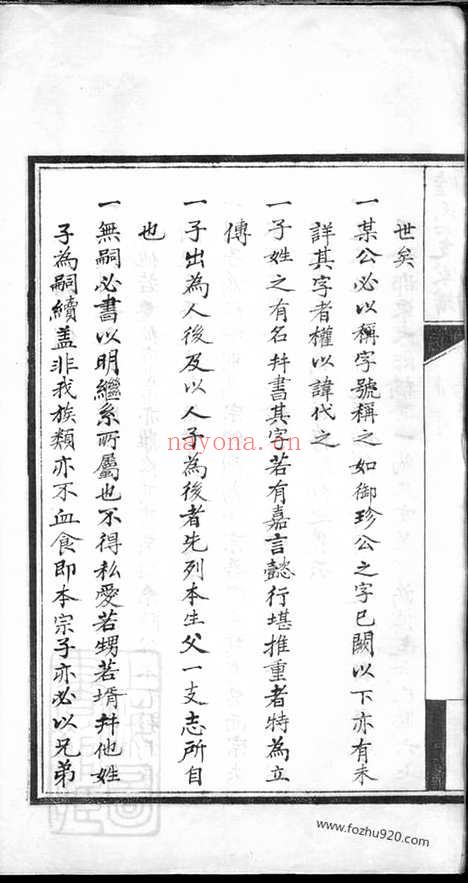 世矣
一某公必以稱字號稱之如御珍公之字已闕以下亦有未
詳其字者權以諱代之
一子姓之有名幷書其字若有嘉言懿行堪推重者特為立
傳
一子出為人後及以人子為後者先列本生父一支志所自
也
一無嗣必書以明繼系所屬也不得私愛若甥若壻幷他姓
子為嗣續盖非我族類亦不血食即本宗子亦必以兄弟
nayona.cn
www.fozhu920.com